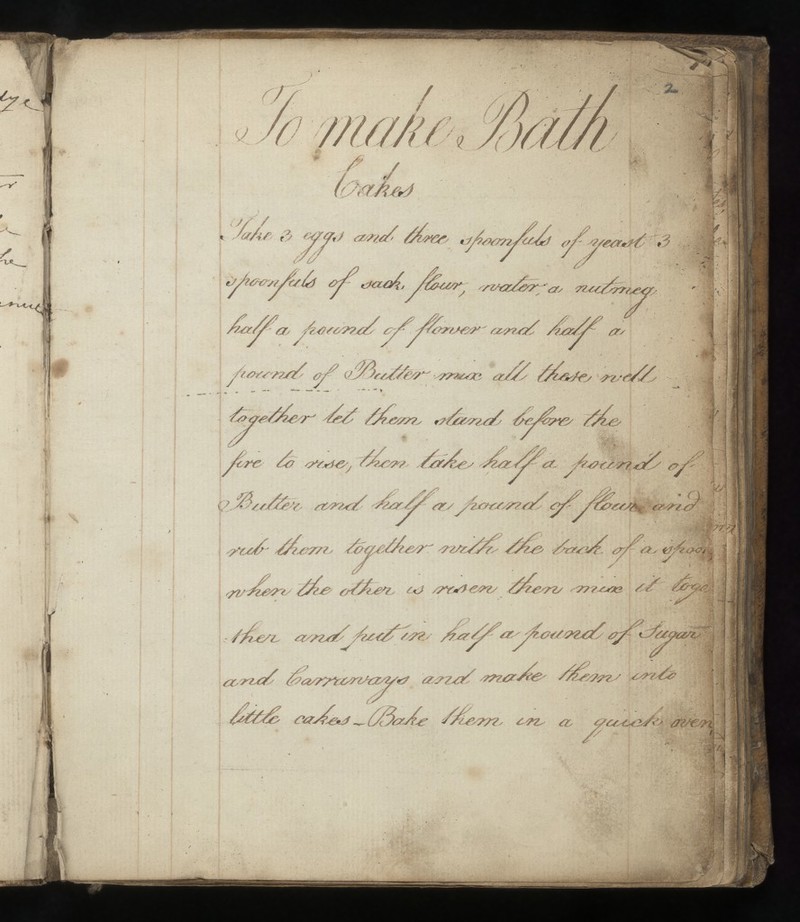 2
To make Bath
Cakes
Take 3 eggs and three spoonfuls of yeast 3
spoonfuls of sack flour, water, a nutmeg
half a pound of flower and half a
pound of Butter mix all these well
together let them stand before the
fire to rise, then take half a pound of
Butter and half a pound of flour and
rub them together with the back of a spoon
when the other is risen then mix it toge
ther and put in half a pound of Sugar
and Carraways and make them into
little cakes - Bake them in a quick oven